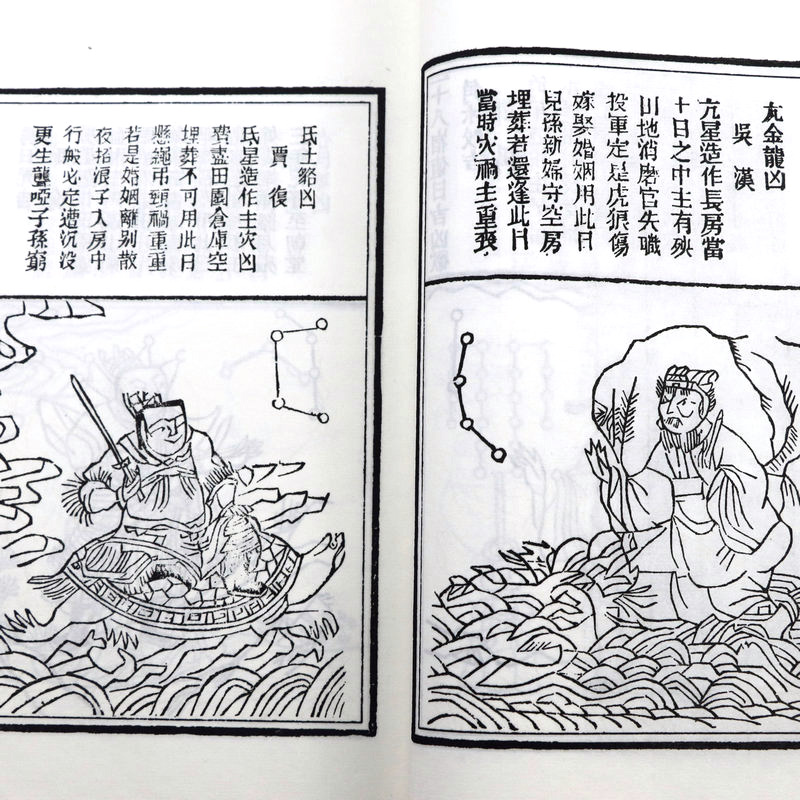 亢金龍凶
吳漢
亢星造作長房當
十日之中主有殃
田地消磨官失職
投軍定是虎狼傷
嫁娶婚姻用此日
兒孫新婦守空房
埋葬若還逢此日
當時灾禍主重喪
氐土貉凶
賈復
氐星造作主灾凶
費盡田園倉庫空
埋葬不可用此日
懸繩吊頸禍重重
若是婚姻離别散
夜招浪子入房中
行船必定遭沉没
更生聾啞子孫窮